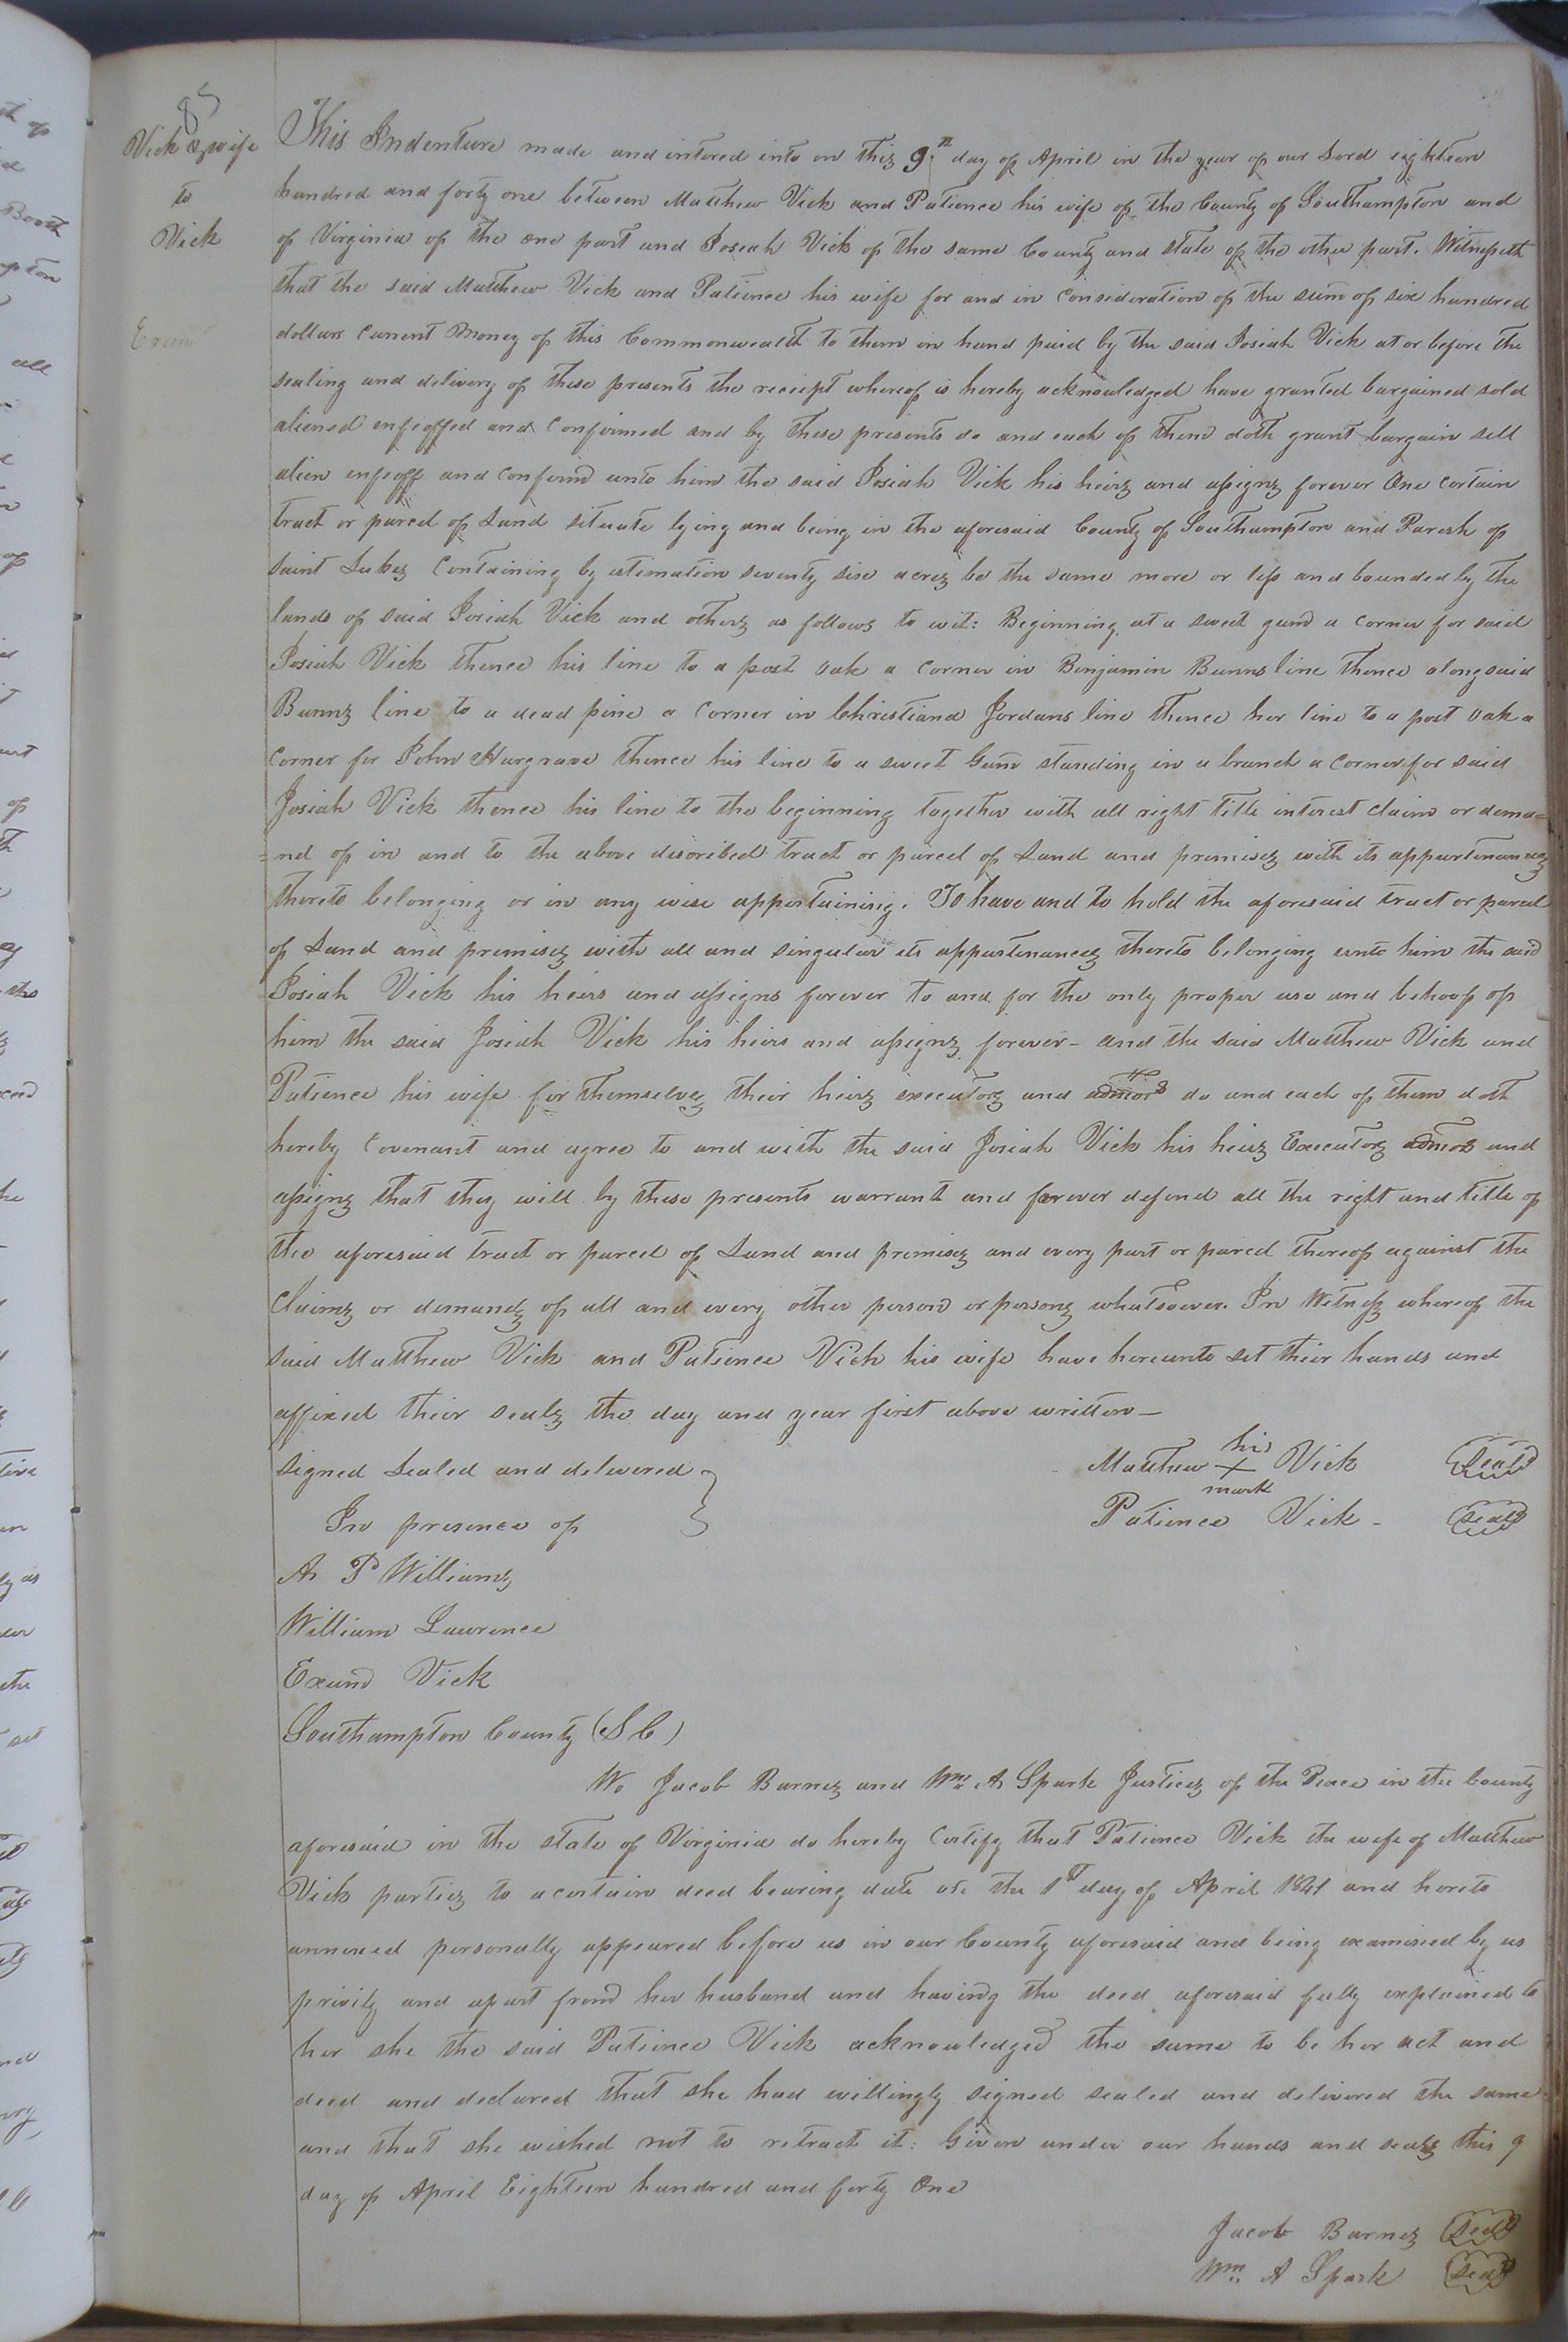 85
Vick & wife
to
Vick
Exam
This Indenture made and intered into on this 9th day of April in the year of our Lord eighteen
hundred and forty one between Matthew Vick and Patience his wife of the County of Southampton and
of Virginia of the one part and Josiah Vick of the same County and state of the other part. Witnesseth
that the said Matthew Vick and Patience his wife for and in consideration of the sum of six hundred
dollars current money of this Commonwealth to them in hand paid by the said Josiah Vick at or before the
sealing and delivery of these presents the reciept whereof is hereby acknowledged have granted bargained sold
aliened enfeoffed and confirmed and by these presents do and each of them doth grant bargain sell
alien enfeoff and confirm unto him the said Josiah Vick his heirs and assigns forever One certain
tract or parcel of Land situate lying and being in the aforesaid County of Southampton and Parish of
saint Lukes Containing by estimation seventy six acres be the same more or less and bounded by the
lands of said Josiah Vick and others as follows to wit: Beginning at a sweet gum a corner for said
Josiah Vick thence his line to a post oak a corner in Benjamin Bunns line thence along said
Bunns line to a dead pine a corner in Christiana Jordans line thence her line to a post oak a
corner for John Hargrave thence his line to a sweet Gum standing in a branch a corner for said
Josiah Vick thence his line to the beginning together with all right title interest claim or dema=
=nd of in and to the above discribed tract or parcel of Land and premises with its appurtenances
thereto belonging or in any wise appertaining. To have and to hold the aforesaid tract or parcel
of Land and premises with all and singular its appurtenances thereto belonging unto him the said
Josiah Vick his heirs and assigns forever to and for the only proper use and behoof of
him the said Josiah Vick his heirs and assigns forever - and the said Matthew Vick and
Patience his wife for themselves their heirs executors and admors do and each of them doth
hereby Covenant and agree to and with the said Josiah Vick his heirs Executors admors and
assigns that they will by these presents warrant and forever defend all the right and title of
the aforesaid tract or parcel of Land and premises and every part or parcel thereof against the
Claims or demands of all and every other person or persons whatsoever. In Witness whereof the
said Matthew Vick and Patience Vick his wife have hereunto set their hands and
affixed their seals the day and year first above written -
signed sealed and delivered
In presence of
his
Matthew + Vick seal
mark
Patience Vick - seal
A P Williams
William Lawrence
Exum Vick
Southampton County (S C)
We Jacob Barnes and Wm A Spark Justices of the Peace in the County
aforesaid in the state of Virginia do hereby certify that Patience Vick the wife of Matthew
Vick parties to a certain deed bearing date on the 1st day of April 1841 and hereto
annexed personally appeared before us in our County aforesaid and being examined by us
privily and apart from her husband and having the deed aforesaid fully explained to
her she the said Patience Vick acknowledged the same to be her act and
deed and declared that she had willingly signed sealed and delivered the same
and that she wished not to retract it: Given under our hands and seals this 9
day of April Eighteen hundred and forty One
Jacob Barnes seal
Wm A Spark seal